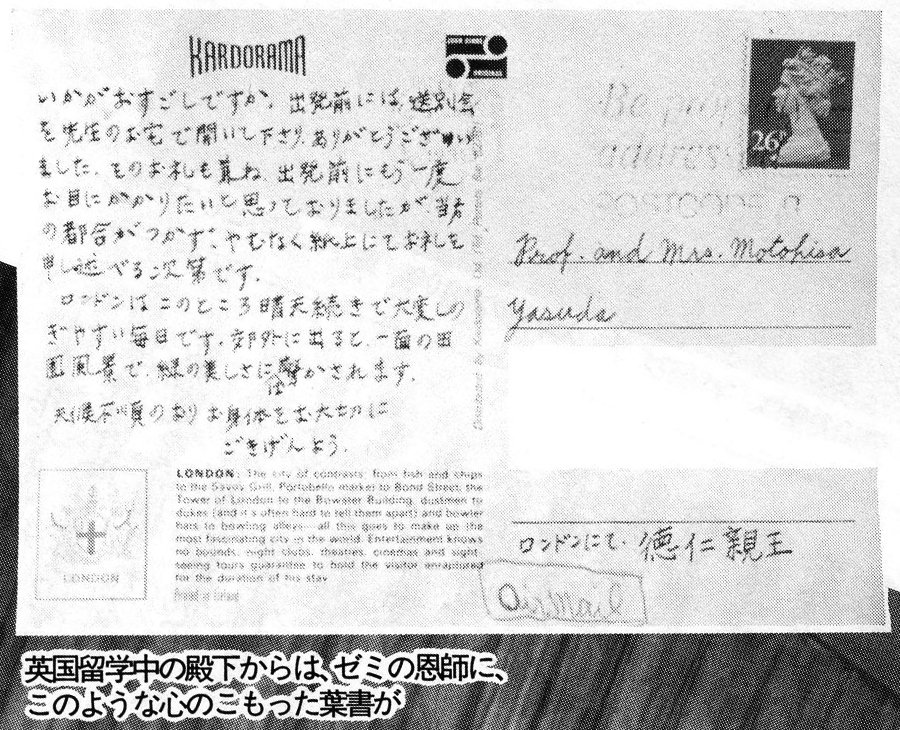 KARDORAMA
いかがおすごしですか。出発前には、送別会
を先生のお宅で開いて下さり、ありがとうござい
ました。そのお礼も兼ね、出発前にもう一度
お目にかかりたいと思っておりましたが、当方
の都合がつかず、やむなく紙上にてお礼を
申し述べる次第です。
ロンドンはこのところ晴天続きで大変しの
ぎやすい毎日です。郊外に出ると、一面の田
園風景で、緑の美しさに驚かされます。
天候不順のおりお身体をお大切に
ごきげんよう。
LONDON: The city of contrasts from fish and chips
to the Savoy Grill, Portobello market to Bond Street, the
Tower of London to the Bowater Building, dustmen to
dukes (and it's often hard to tell them apart) and bowler
hats to bowling alleys—all this goes to make up the
most fascinating city in the world. Entertainment knows
no bounds, night clubs, theatres, cinemas and sight
seeing tours guarantee to hold the visitor enraptured
for the duration of his stay
LONDON
ORIGINAL
26
Be prop
addres
Prof. and Mrs. Motohisa
Yasuda
ロンドンにて、徳仁親王
Air Mail
英国留学中の殿下からは、ゼミの恩師に、
このような心のこもった葉書が